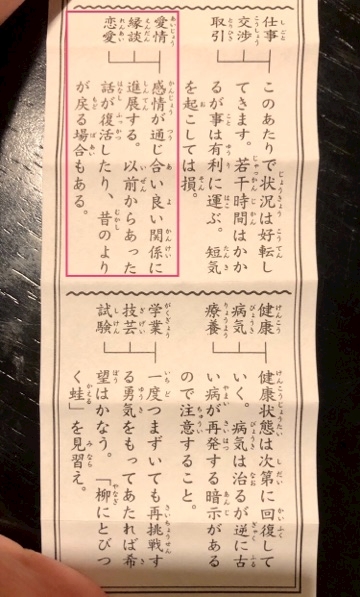 仕事
交渉
取引
このあたりで状況は好転し
てきます。若干時間はかか
るが事は有利に運ぶ。短気
を起こしては損。
愛情
縁談
恋愛
感情が通じ合い良い関係に
進展する。以前からあった
話が復活したり、昔のより
が戻る場合もある。
健康
病気
療養
健康状態は次第に回復して
いく。病気は治るが逆に古
い病が再発する暗示がある
ので注意すること。
学業
技芸
試験
一度つまずいても再挑戦す
る勇気をもってあたれば希
望はかなう。「柳にとびつ
く蛙」を見習え。